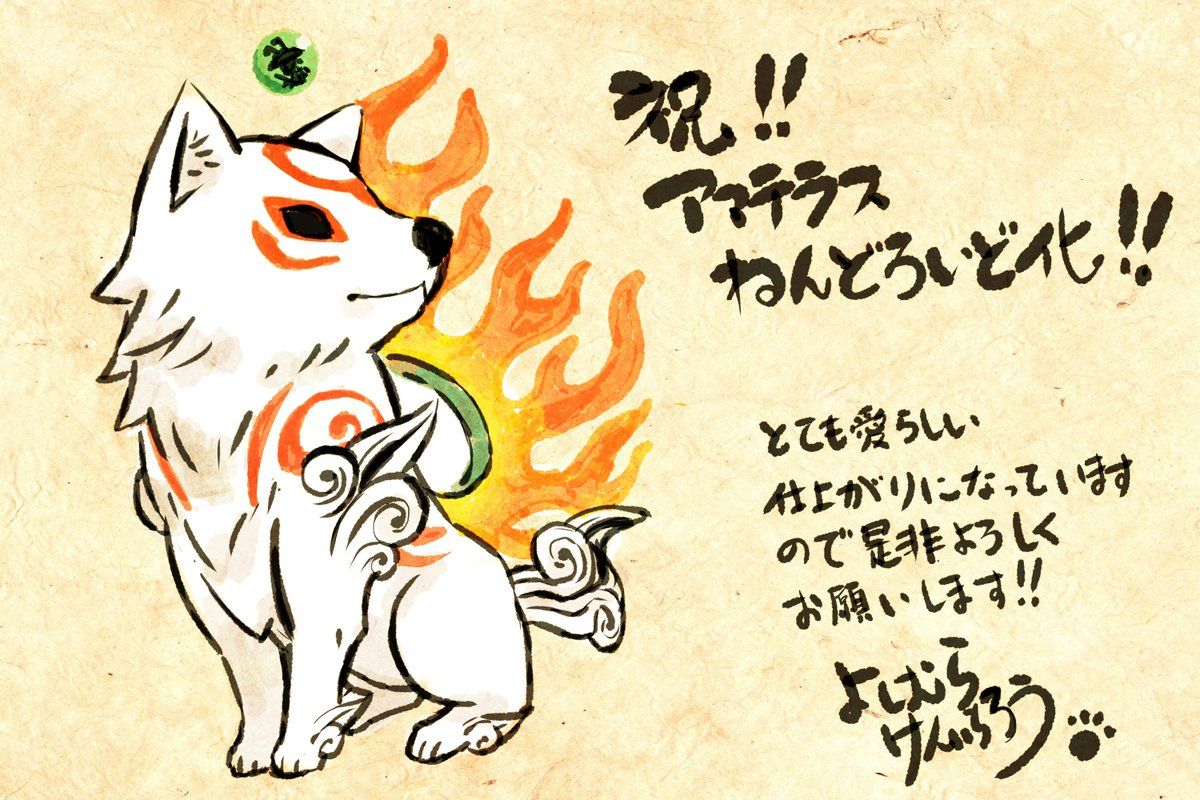 祝!!
アマテラス
ねんどろいど化!!
とても愛らしい
仕上がりになっています
ので是非よろしく
お願いします!!
よしむら
けんいちろう